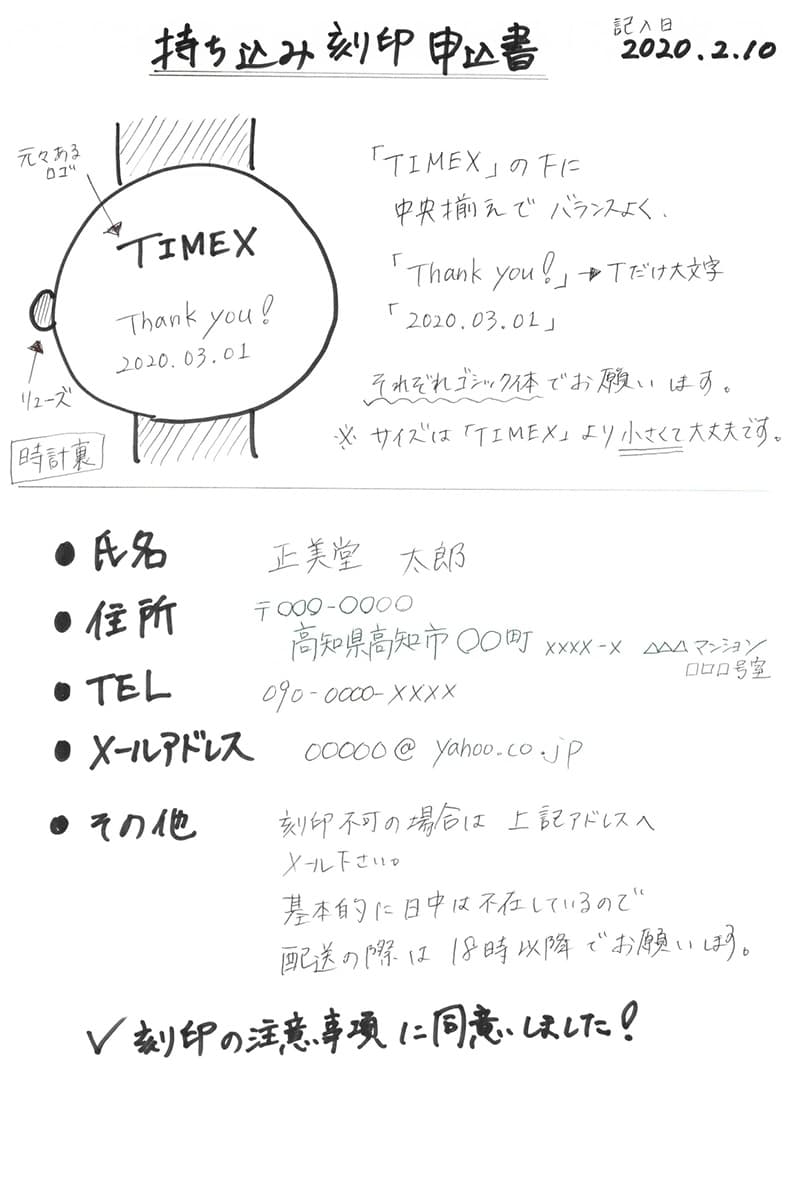 持ち込み刻印申込書
記入日
2020.2.10
元々ある
ロゴ
TIMEX
Thank you!
2020.03.01
リューズ
時計裏
「TIMEX」の下に
中央揃えでバランスよく、
「Thank you!」→Tだけ大文字
「2020.03.01」
それぞれゴシック体でお願いします。
※サイズは「TIMEX」より小さくて大丈夫です。
● 氏名 正美堂 太郎
● 住所 〒000-0000
高知県高知市〇〇町 xxxx-x △△△マンション
□□□号室
● TEL 090-0000-XXXX
● メールアドレス 00000@yahoo.co.jp
● その他 刻印不可の場合は上記アドレスへ
メール下さい。
基本的に日中は不在しているので
配送の際は18時以降でお願いします。
✓刻印の注意事項に同意しました!